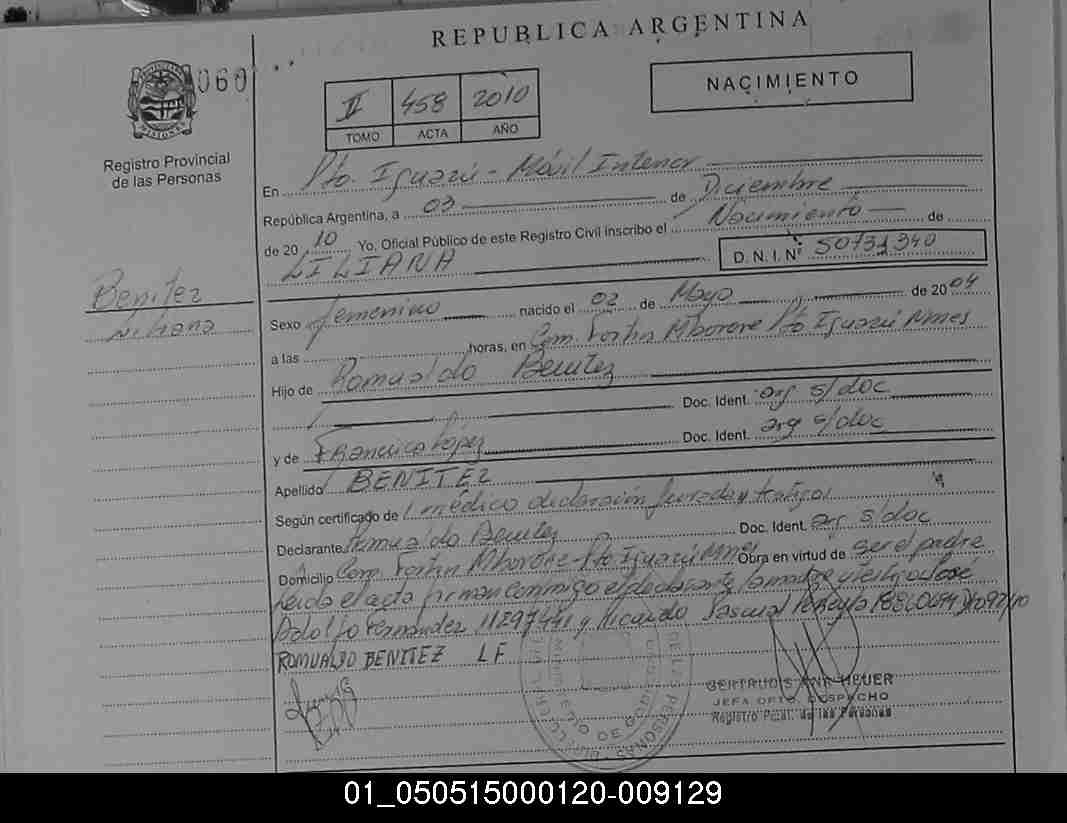 REPUBLICA ARGENTINA
060
NACIMIENTO
II 458 2010
TOMO ACTA AÑO
Registro Provincial
de las Personas
En Pto. Iguazú - Móvil Interior
República Argentina, a 03 de Diciembre
de 2010 Yo. Oficial Público de este Registro Civil inscribo el Nacimiento de
LILIANA D. N. I. Nº 50731340
Benitez
Liliana
Sexo femenino nacido el 02 de Mayo de 2004
a las horas, en Com. Fortin Mborore Pto Iguazú Mnes
Hijo de Romualdo Benitez
Doc. Ident. arg s/doc
y de Francisca López Doc. Ident. arg s/doc
Apellido BENITEZ
Según certificado de médico declaración jurada y testigos
Declarante Romualdo Benitez Doc. Ident. arg s/doc
Domicilio Com. Fortin Mborore - Pto Iguazú Mnes Obra en virtud de ser el padre
Leída el acta firman conmigo el declarante, la madre y testigos José
Adolfo Fernandez 11297441 y Ricardo Pascual
ROMUALDO BENITEZ LF
GERTRUDIS ANA HEUER
JEFA DPTO. DESPACHO
Registro Pcial. de las Personas
01_050515000120-009129